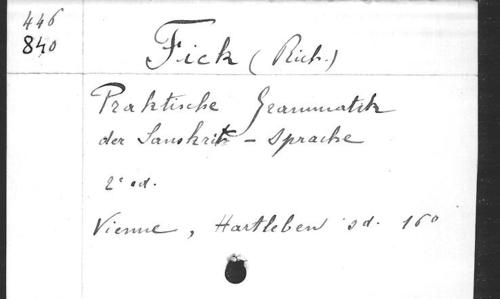 446
840
Fick (Rich.)
Praktische Grammatik
der Sanskrit - Sprache
2e ed.
Vienne, Hartleben sd. 16o